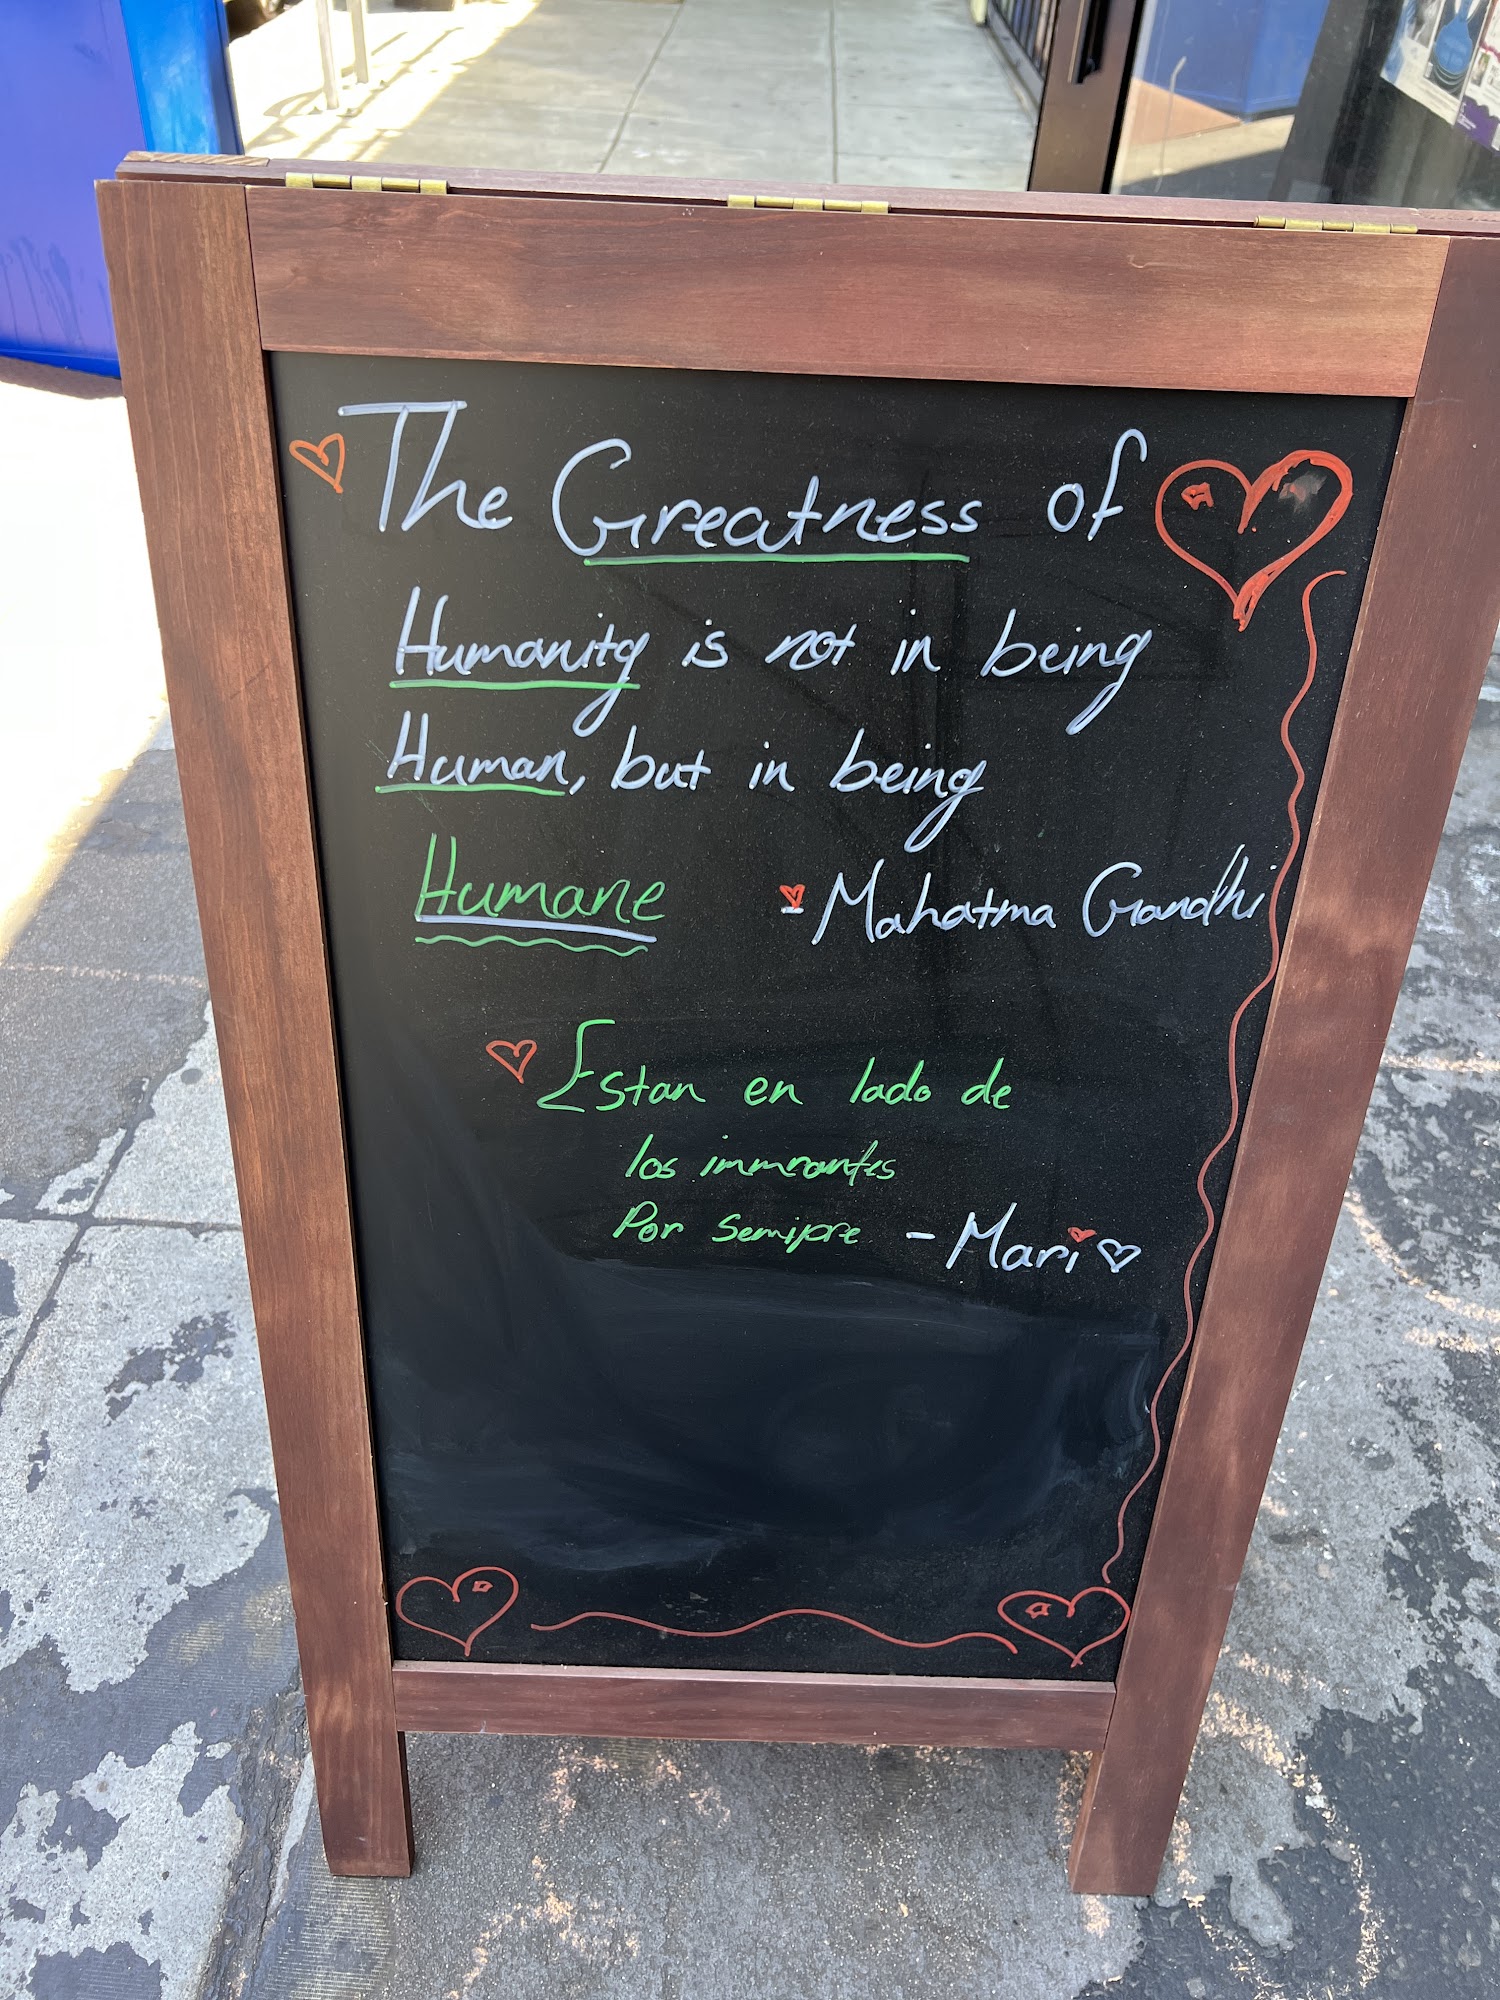 The Greatness of
Humanity is not in being
Human, but in being
Humane - Mahatma Gandhi
Estan en lado de
los immrantes
Por semipre - Mari